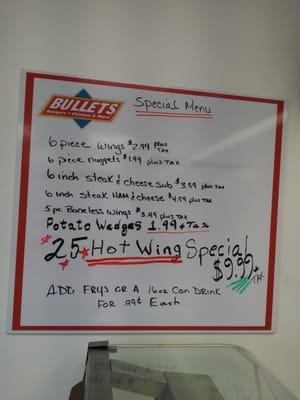 BULLETS
Burgers • Chicken & More
Special Menu
6 piece wings $2.99 plus TAX
6 piece nuggets $1.99 plus TAX
6 inch steak & cheese sub $3.99 plus TAX
6 inch steak HAM & cheese $4.99 plus TAX
5 pc Boneless wings $3.49 plus TAX
Potato Wedges 1.99 + Tax
25 Hot Wing Special
$9.99 + TAX
ADD FRYS OR A 16oz CAN DRINK
FOR .99¢ Each